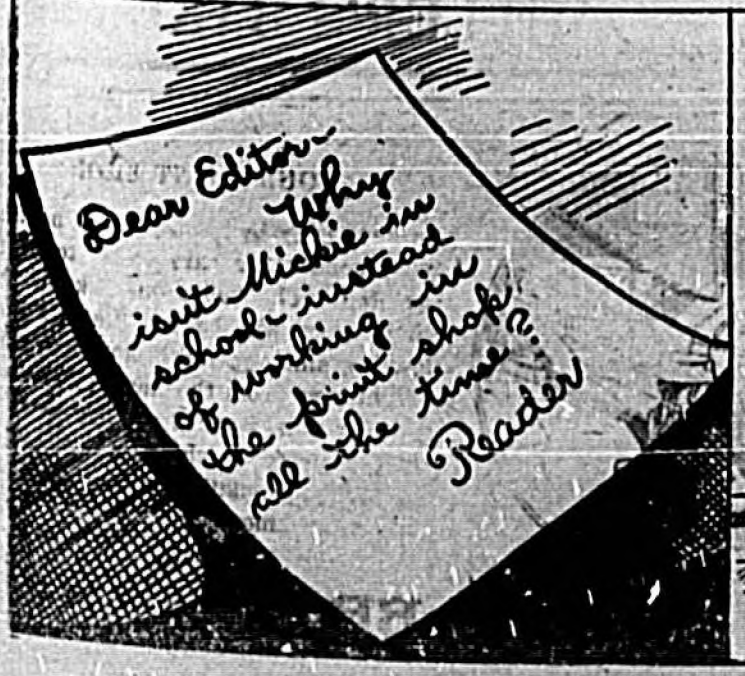 Dear Editor~
Why
isn't Mickie in
school - instead
of working in
the print shop
all the time?
Reader